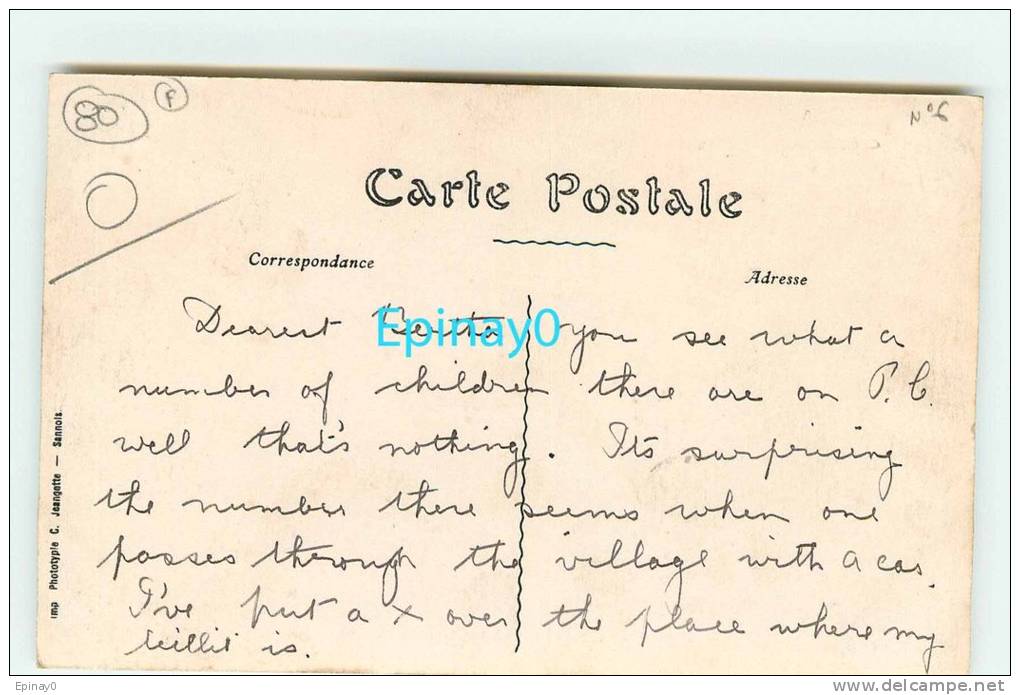 80
P
N°6
Carte Postale
Correspondance
Adresse
Dearest Bertha you see what a
number of children there are on P.C.
well that's nothing. Its surprising
the number there seems when one
passes through the village with a car.
I've put a x over the place where my
billit is.
Imp Phototypie C. Jeangette — Sannois.
Epinay0
Epinay0
www.delcampe.net